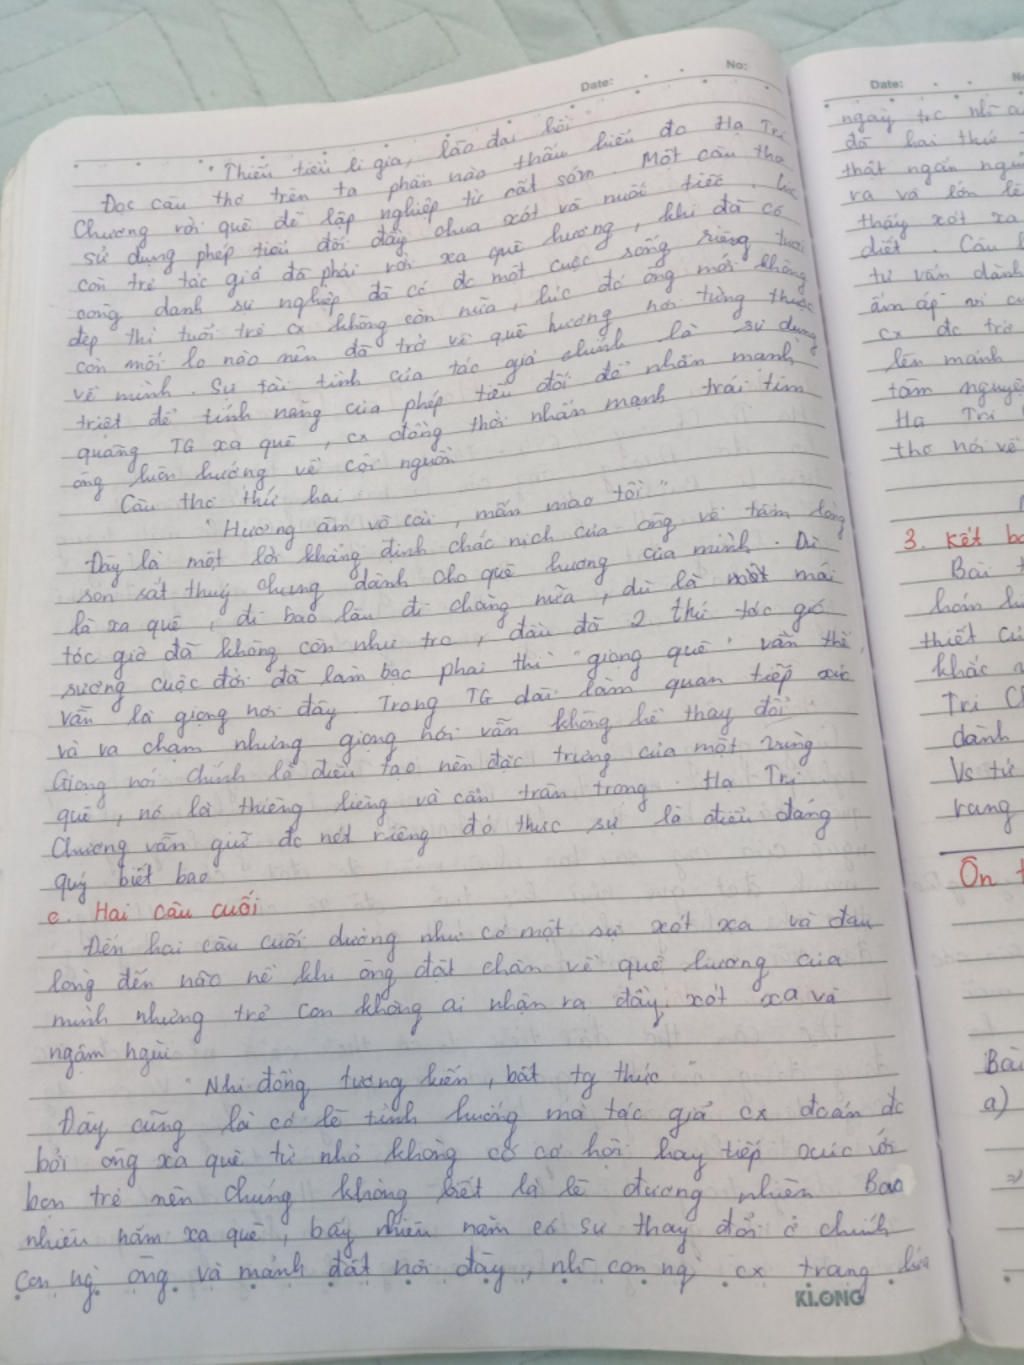 Date: No:
" Thiếu tiểu li gia, lão đại hồi "
Đọc câu thơ trên ta phần nào thấu hiểu đc Hạ Tri
Chương rời quê để lập nghiệp từ rất sớm. Một câu thơ
sử dụng phép tiểu đối đầy chua xót và nuối tiếc. Lúc
còn trẻ tác giả đã phải rời xa quê hương, khi đã có
công danh sự nghiệp đã có đc một cuộc sống riêng tươi
đẹp thì tuổi trẻ cx không còn nữa, lúc đó ông mới không
còn mối lo nào nên đã trở về quê hương nơi từng thuộc
về mình. Sự tài tình của tác giả chính là sử dụng
triệt để tính năng của phép tiểu đối để nhấn mạnh
quãng TG xa quê, cx đồng thời nhấn mạnh trái tim
ông luôn hướng về cội nguồn.
Câu thơ thứ hai
" Hương âm vô cải, mấn mao tồi "
Đây là một lời khẳng định chắc nịch của ông về tấm lòng
son sắt thuỷ chung dành cho quê hương của mình. Dù
là xa quê, đi bao lâu đi chăng nữa, dù là một mái
tóc giờ đã không còn như trc, dẫu đã 2 thứ tóc gió
sương cuộc đời đã làm bạc phai thì "giọng quê" vẫn thế,
vẫn là giọng nơi đây. Trong TG dài làm quan tiếp xúc
và va chạm nhưng giọng nói vẫn không hề thay đổi.
Giọng nói chính là điều tạo nên đặc trưng của một vùng
quê, nó là thiêng liêng và cần trân trọng. Hạ Tri
Chương vẫn giữ đc nét riêng đó thực sự là điều đáng
quý biết bao
c. Hai câu cuối
Đến hai câu cuối dường như có một sự xót xa và đau
lòng đến não nề khi ông đặt chân về quê hương của
mình nhưng trẻ con không ai nhận ra đầy xót xa và
ngậm ngùi
" Nhi đồng tương kiến, bất tg thức "
Đây cũng là có lẽ tình huống mà tác giả cx đoán đc
bởi ông xa quê từ nhỏ không có cơ hội hay tiếp xúc với
bọn trẻ nên chúng không biết là lẽ đương nhiên. Bao
nhiêu năm xa quê, bấy nhiêu năm có sự thay đổi ở chính
con ng ông và mảnh đất nơi đây, nh con ng cx trang lứa
KLONG
Date:
ngày trc
đã hai thứ
thật ngắn
ra và lớn
thấy xót xa
diết Câu
tư vấn dành
ấm áp nơi
cx đc trở
lên mảnh
tâm nguyện
Hạ Tri
thơ nói về
3. Kết
Bài
thiết
khắc
Tri
dành
Vs tứ
rang
Ôn
Bài
a)